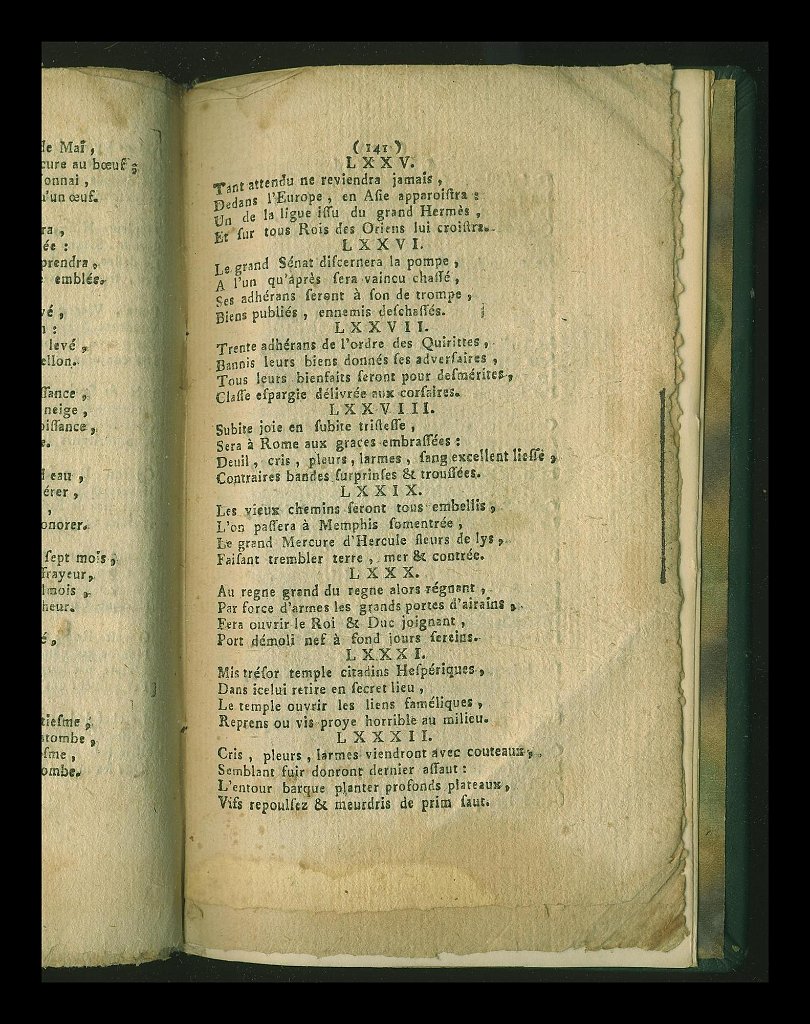 le Mai,
cure au bœuf;
onnai,
u'un œuf.
ra,
ée :
prendra,
emblée.
vé,
n :
levé,
ellon.
ſſance,
neige,
oiſſance,
e.
eau,
érer,
,
onorer.
ſept mois,
frayeur,
mois,
heur.
é,
tieſme,
tombe,
ſme,
ombe.
( 141 )
LXXV.
Tant attendu ne reviendra jamais,
Dedans l'Europe, en Aſie apparoiſtra :
Un de la ligue iſſu du grand Hermès,
Et ſur tous Rois des Oriens lui croiſtra.
LXXVI.
Le grand Sénat diſcernera la pompe,
A l'un qu'après ſera vaincu chaſſé,
Ses adhérans ſeront à ſon de trompe,
Biens publiés, ennemis deſchaſſés.
LXXVII.
Trente adhérans de l'ordre des Quirittes,
Bannis leurs biens donnés ſes adverſaires,
Tous leurs bienfaits ſeront pour deſmérites,
Claſſe eſpargie délivrée aux corſaires.
LXXVIII.
Subite joie en ſubite triſteſſe,
Sera à Rome aux graces embraſſées :
Deuil, cris, pleurs, larmes, ſang excellent lieſſe,
Contraires bandes ſurprinſes & trouſſées.
LXXIX.
Les vieux chemins ſeront tous embellis,
L'on paſſera à Memphis ſomentrée,
Le grand Mercure d'Hercule fleurs de lys,
Faiſant trembler terre, mer & contrée.
LXXX.
Au regne grand du regne alors régnant,
Par force d'armes les grands portes d'airains,
Fera ouvrir le Roi & Duc joignant,
Port démoli nef à fond jours ſereins.
LXXXI.
Mis tréſor temple citadins Heſpériques,
Dans icelui retire en ſecret lieu,
Le temple ouvrir les liens faméliques,
Reprens ou vis proye horrible au milieu.
LXXXII.
Cris, pleurs, larmes viendront avec couteaux,
Semblant fuir donront dernier aſſaut :
L'entour barque planter profonds plateaux,
Vifs repoulſez & meurdris de prim ſaut.